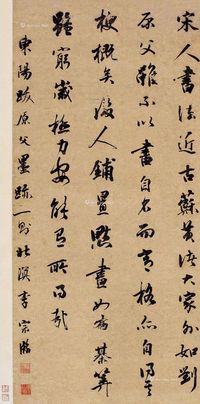 宋人書法近古蘇黃諸大家外如劉
原父雖不以書自名而高格亦自得其
梗概矣後人鋪置點畫如布棊算
雖窮歲極力安能有所得哉
東陽跋原父墨跡一則北溟李宗瀚